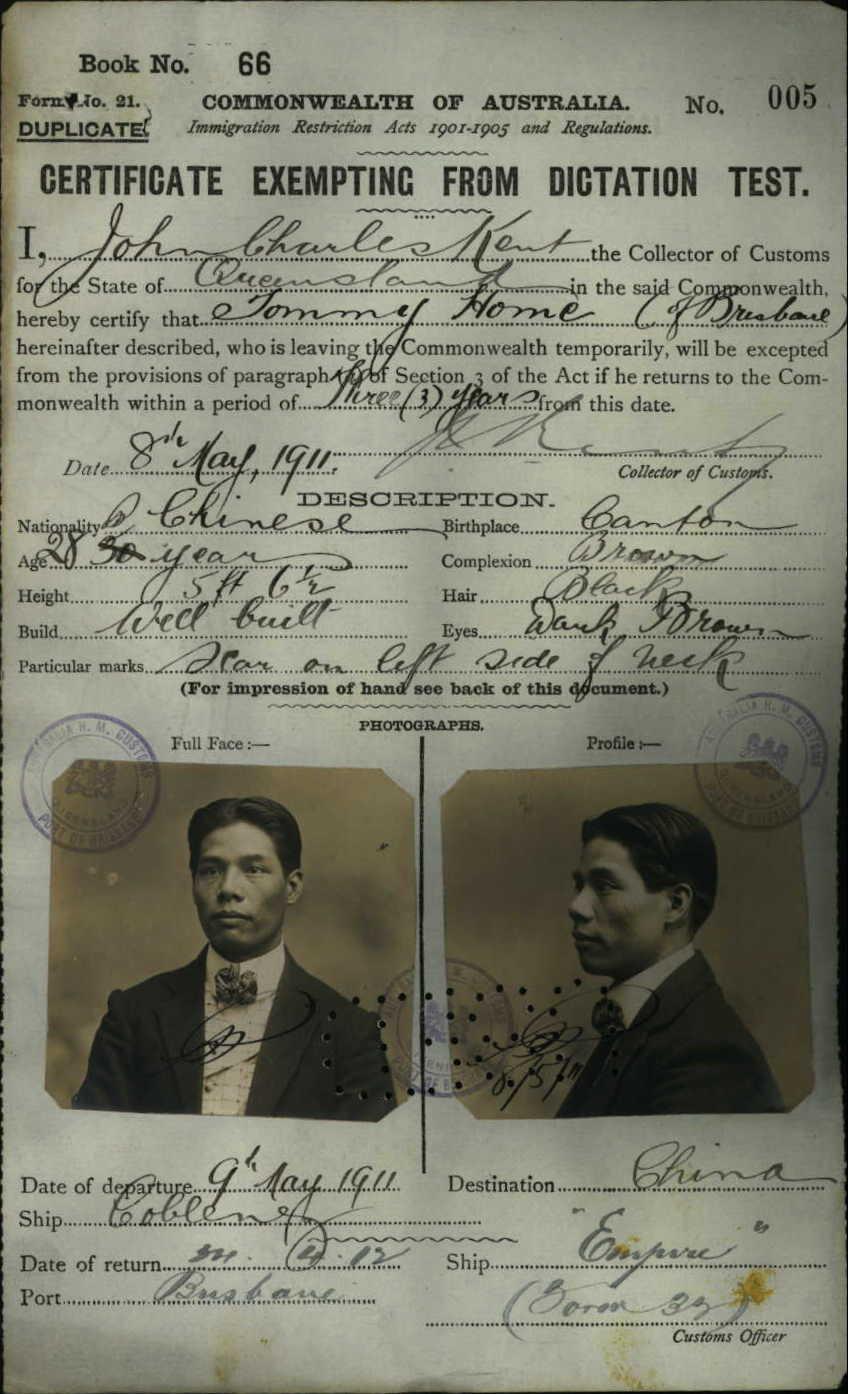 Book No. 66
Form No. 21. COMMONWEALTH OF AUSTRALIA. No. 005
DUPLICATE Immigration Restriction Acts 1901-1905 and Regulations.
CERTIFICATE EXEMPTING FROM DICTATION TEST.
I, John Charles Kent the Collector of Customs
for the State of Queensland in the said Commonwealth,
hereby certify that Tommy Home (of Brisbane)
hereinafter described, who is leaving the Commonwealth temporarily, will be excepted
from the provisions of paragraph of Section 3 of the Act if he returns to the Com-
monwealth within a period of Three (3) years from this date.
Date 8th May, 1911.
Collector of Customs.
DESCRIPTION.
Nationality Chinese Birthplace Canton
Age 28 30 year Complexion Brown
Height 5 ft 6½ Hair Black
Build Well built Eyes Dark Brown
Particular marks Scar on left side of neck
(For impression of hand see back of this document.)
PHOTOGRAPHS.
Full Face :— Profile :—
AUSTRALIA H. M. CUSTOMS
QUEENSLAND
PORT OF BRISBANE
8/5/11
Date of departure 9th May 1911 Destination China
Ship Coblenz
Date of return 24. 4. 12 Ship "Empire"
Port Brisbane (Form 32)
Customs Officer